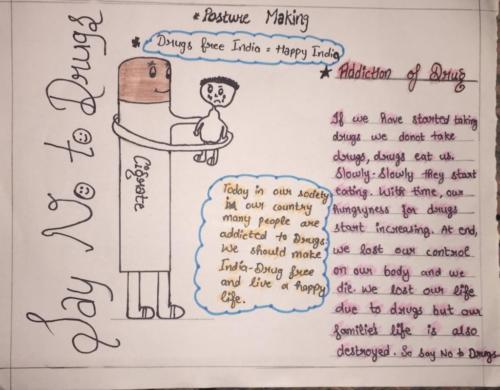 * Posture Making
Say No to Drugs
* Drugs free India = Happy India
Cigrate
Today in our society
in our country
many people are
addicted to Drugs.
We should make
India-Drug free
and live a happy
life.
★ Addiction of Drug
If we have started taking
drugs we donot take
drugs, drugs eat us.
Slowly-Slowly they start
eating. With time, our
hungryness for drugs
start increasing. At end,
we lost our control
on our body and we
die. We lost our life
due to drugs but our
families life is also
destroyed. So Say No to Drugs